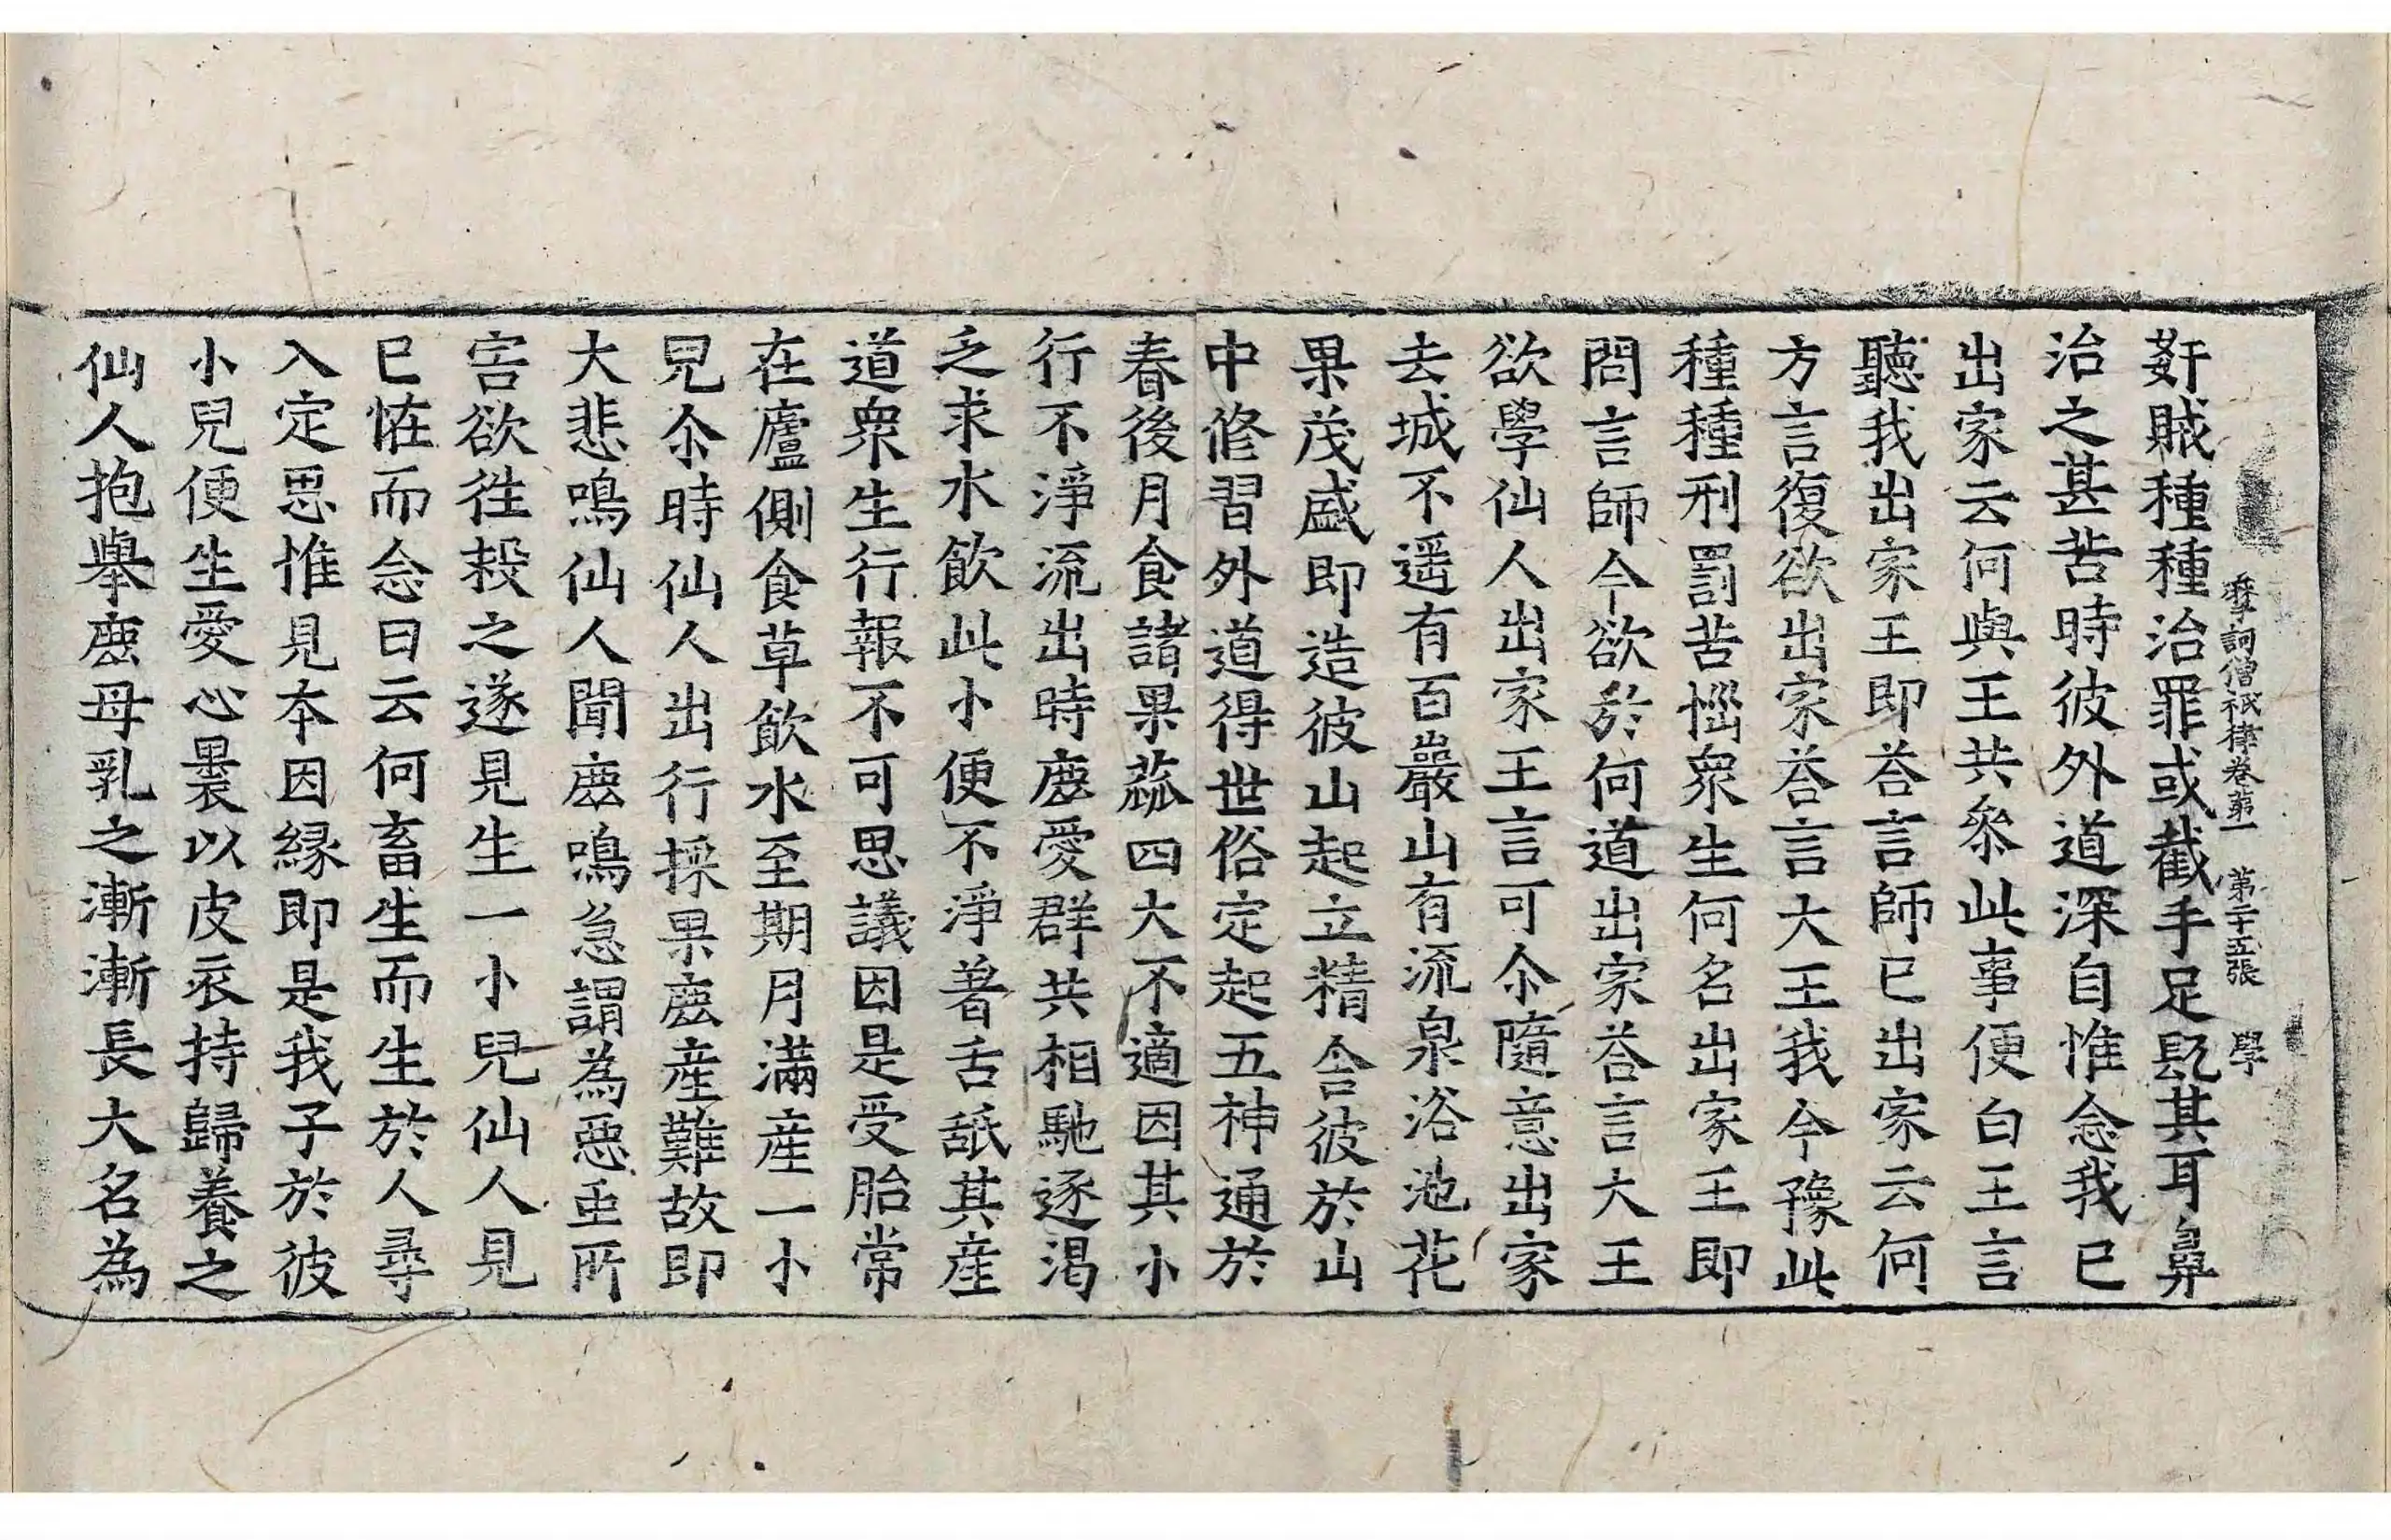 摩訶僧祇律卷第一 第二十五張 學
姧賊種種治罪或截手足䀈其耳鼻
治之甚苦時彼外道深自惟念我已
出家云何與王共叅此事便白王言
聽我出家王即荅言師已出家云何
方言復欲出家荅言大王我今豫此
種種刑罰苦惱衆生何名出家王即
問言師今欲於何道出家荅言大王
欲學仙人出家王言可尒隨意出家
去城不遥有百巖山有流泉浴池花
果茂盛即造彼山起立精舍彼於山
中修習外道得世俗定起五神通於
春後月食諸果蓏四大不適因其小
行不淨流出時鹿愛群共相馳逐渴
乏求水飲此小便不淨著舌舐其産
道衆生行報不可思議因是受胎常
在廬側食草飲水至期月滿産一小
兒尒時仙人出行採果鹿産難故即
大悲鳴仙人聞鹿鳴急謂為惡䖝所
害欲往煞之遂見生一小兒仙人見
已恠而念曰云何畜生而生於人尋
入定思惟見本因縁即是我子於彼
小兒便生愛心裹以皮衣持歸養之
仙人抱舉鹿母乳之漸漸長大名為